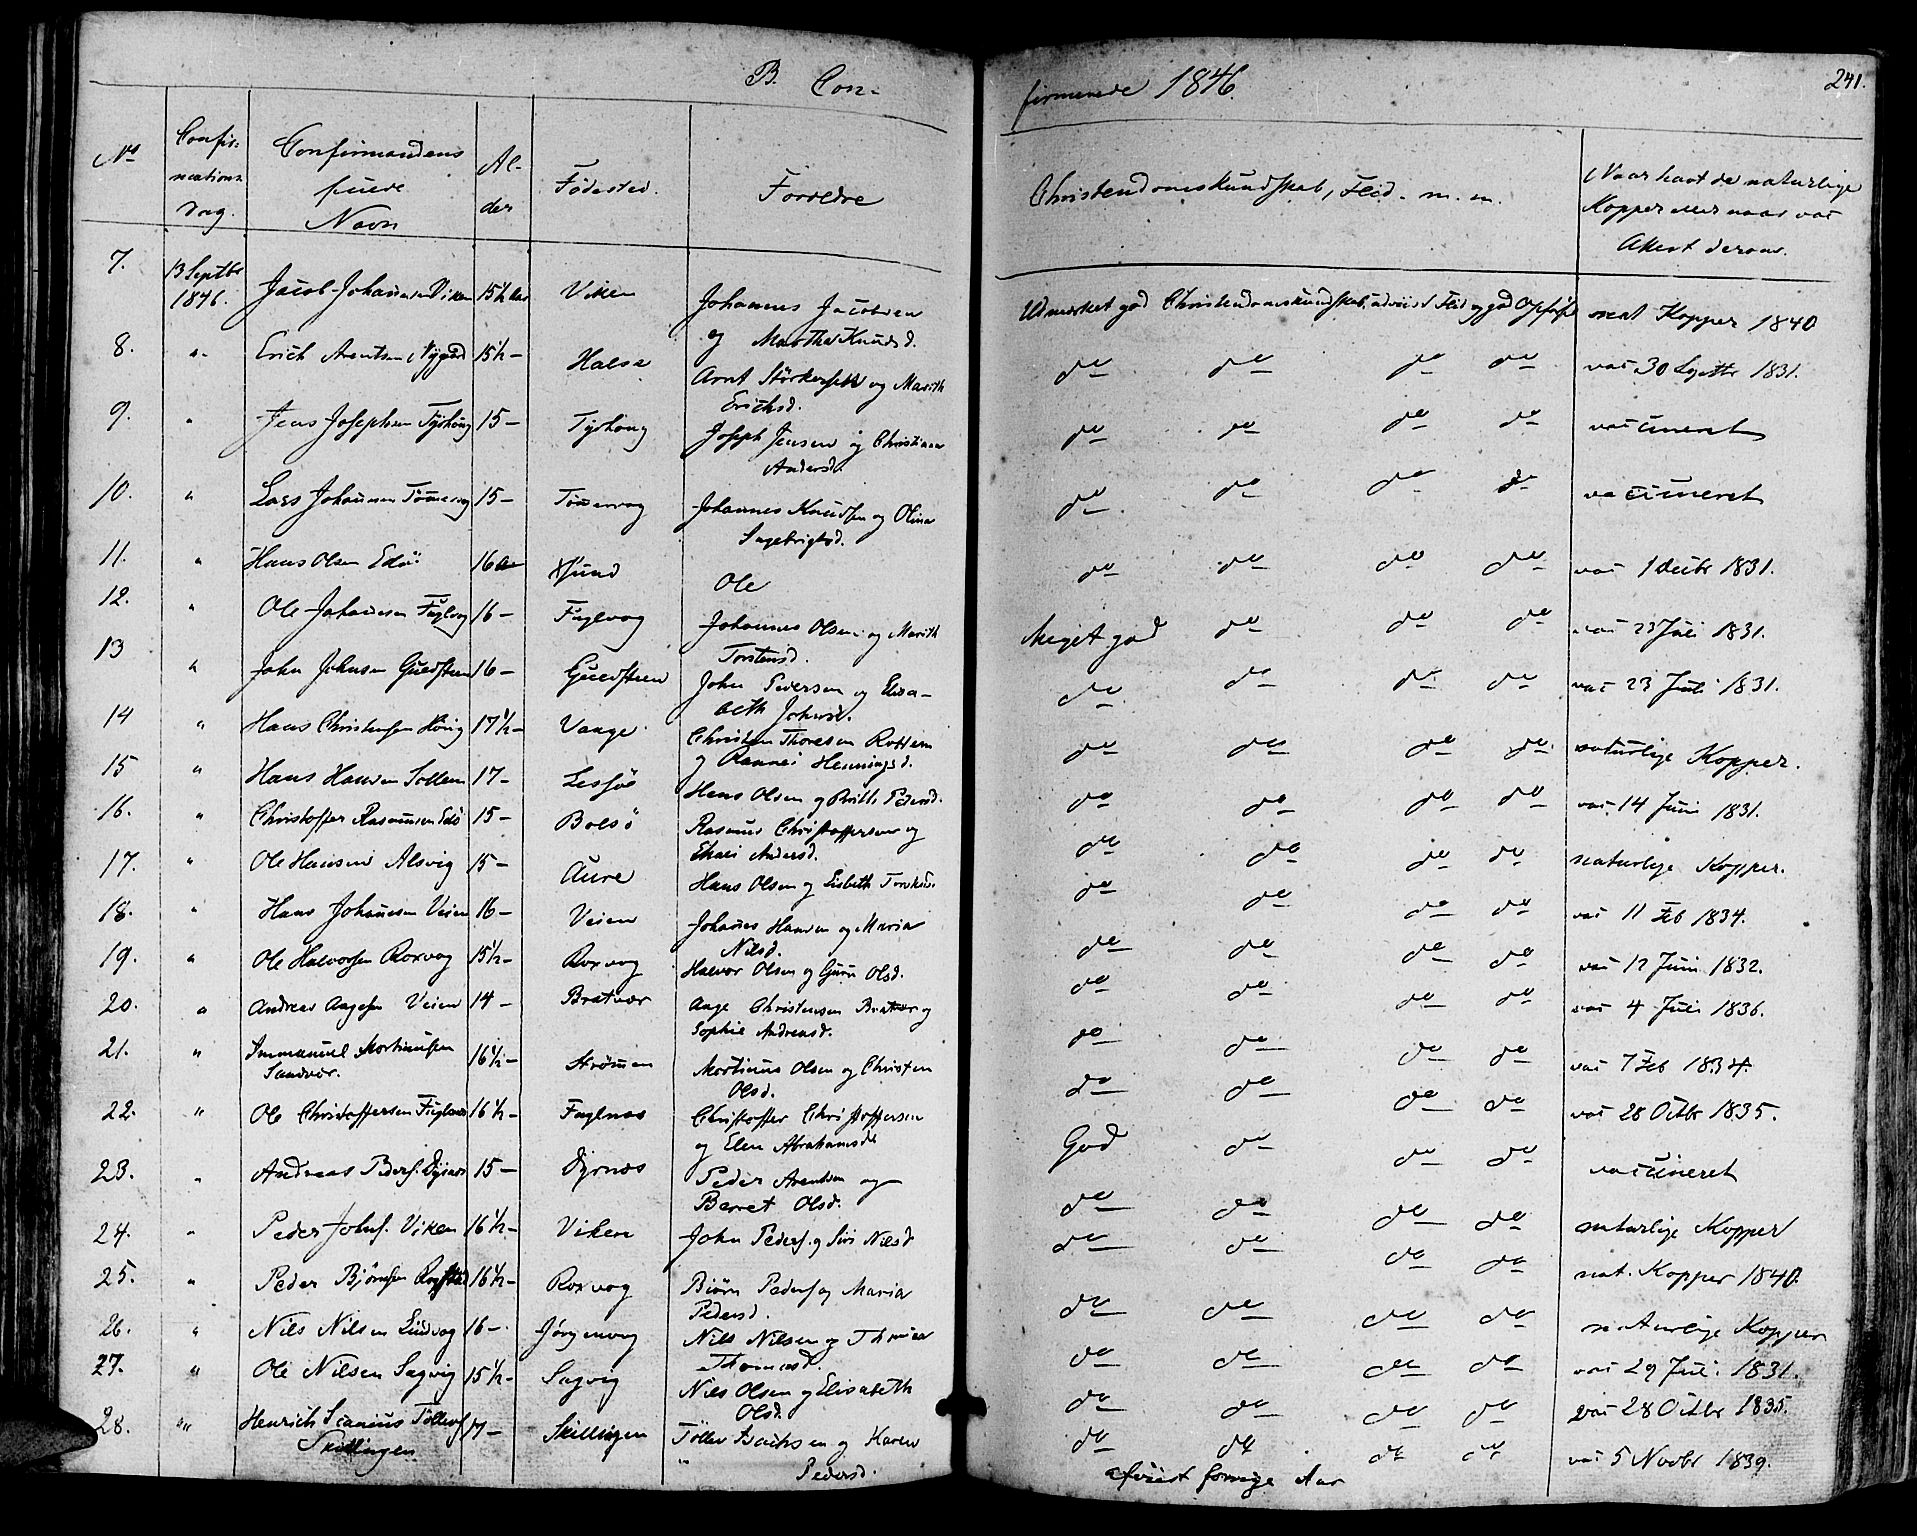 B. Con-
firmerede 1846.
241.
No
Confir-
mations-
Dag.
Confirmandens
fulde
Navn
Al-
der
Fødested.
Forældre
Christendomskundskab, Flid. m. m.
Naar havt de naturlige
Kopper eller naar vac
Attest derom.
7. 13 Septbr 1846. Jacob Johannesen Viken 15½ Aar Viken Johannes Jacobsen
og Martha Knudsd. Udmærket god Christendomskundskab, udviist Flid og god Opførsel nat Kopper 1840
8. " Erich Arentsen Nygård 15½ - Halse Arnt Størkersen og Marith
Erichsd. do do do do vac 30 Septbr 1831.
9. " Jens Josephsen Tyshoug 15 - Tyshoug Joseph Jensen og Christiana
Andersd. do do do do vaccineret
10. " Lars Johannesen Tømmervog 15 - Tømmervog Johannes Knudsen og Olina
Ingebrigtsd. do do do do vaccineret
11. " Hans Olsen Edö 16 Aar Ole do do do do vac 1 Decbr 1831.
12. " Ole Johannesen Fuglvog 16 - Fuglvog Johannes Olsen og Marith
Torstensd. Meget god do do do vac 23 Juli 1831.
13 " John Johnsen Guldsteen 16 - Guldsteen John Pedersen og Elisa-
beth Johnsd. do do do do vac 23 Juli 1831.
14 " Hans Christensen 17½ - Vaage Christen Thoresen Rottem
og Hemingsd. do do do do naturlige Kopper.
15 " Hans Hansen Sollem 17 - Lesjöe Hans Olsen og Britt Pedersd. do do do do vac 14 Juni 1831.
16. " Christoffer Rasmusen Edö 15 - Bolsö Rasmus Christoffersen og
Kari Andersd. do do do do naturlige Kopper.
17. " Ole Hansen Alsvig 15 - Aure Hans Olsen og Lisbeth do do do do vac 11 Feb 1834.
18. " Hans Johannesen Veien 16 - Veien Johannes Hansen og Maria
Nilsd. do do do do vac 12 Juni 1832.
19. " Ole Halvorsen Rorvog 15½ - Rorvog Halvor Olsen og Guru Olsd. do do do do vac 4 Juli 1836.
20. " Andreas Aagesen Veien 14 - Bratvær Aage Christensen Bratvær og
Sophie Andreasd. do do do do vac 7 Feb 1834.
21. " Immanuel Mortinusen
Sandvær. 16½ - Strömen Mortinus Olsen og Christen
Olsd. do do do do vac 28 Octbr 1835.
22. " Ole Christoffersen Fuglnæs 16½ - Fuglnæs Christoffer Christoffersen
og Elen Abrahamsd God do do do vaccineret
23. " Andreas Peders. Dyrnæs 15 - Dyrnæs Peder Arentsen og
Berret Olsd. do do do do naturlige Kopper
24. " Peder Johns. Viken 16½ - Viken John Peders. og Siri Nilsd do do do do nat. Kopper 1840.
25. " Peder Bjørnsen 16½ - Rorvog Biörn Peders og Maria
Pedersd. do do do do naturlige Kopper
26. " Nils Nilsen Lindvog 16 - Jörgenvog Nils Nilsen og
Thomasd. do do do do vac 29 Juli 1831.
27. " Ole Nilsen Sagvig 15½ - Sagvig Nils Olsen og Elisabeth
Olsd. do do do do vac 28 Octbr 1835.
28. " Henrich Tøllefs
Skillingen 17 - Skillingen Töllev Isachsen og Karen
Pedersd. do do do do vac 5 Novbr 1839.
afviist forrige Aar